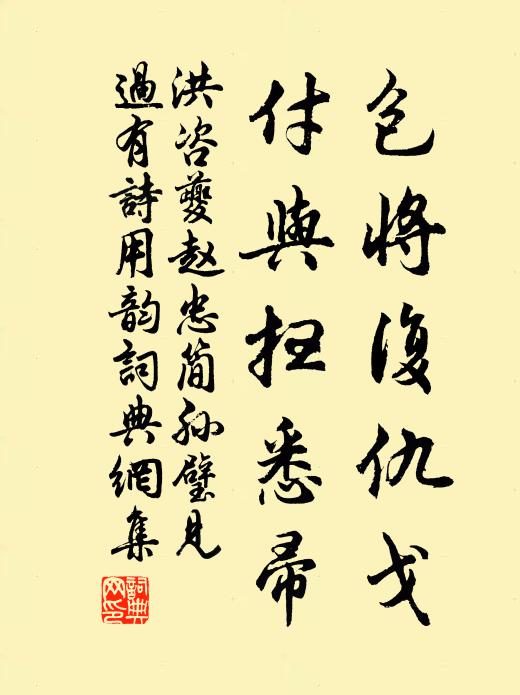 包將復仇戈
付與抂悉帚
洪咨夔趙忠簡孫璧見
過有詩用韵詞典網集
詞典網印